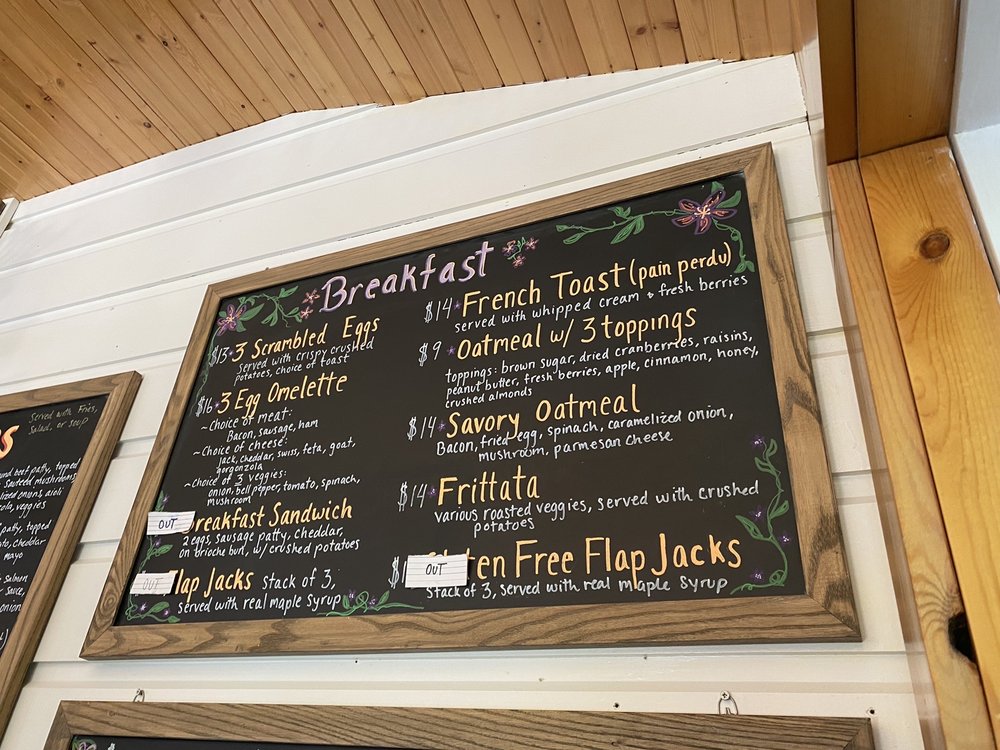 Served with Fries,
Salad, or soup
s
und beef patty, topped
Sauteed mushrooms
lized onions, aioli
ola, veggies
patty, topped
to, cheddar
mayo
Breakfast
$13 3 Scrambled Eggs
Served with crispy crushed
potatoes, choice of toast
$16 3 Egg Omelette
~Choice of meat:
Bacon, sausage, ham
~Choice of cheese:
jack, cheddar, swiss, feta, goat,
gorgonzola
~Choice of 3 veggies:
onion, bell pepper, tomato, spinach,
mushroom
OUT reakfast Sandwich
2 eggs, sausage patty, cheddar,
on brioche bun, w/ crushed potatoes
OUT lap Jacks Stack of 3,
served with real maple syrup
$14 French Toast (pain perdu)
served with whipped cream & fresh berries
$9 Oatmeal w/ 3 toppings
toppings: brown sugar, dried cranberries, raisins,
peanut butter, fresh berries, apple, cinnamon, honey,
crushed almonds
$14 Savory Oatmeal
Bacon, fried egg, spinach, caramelized onion,
mushroom, parmesan cheese
$14 Frittata
various roasted veggies, served with crushed
potatoes
$ OUT ten Free Flap Jacks
Stack of 3, served with real maple syrup